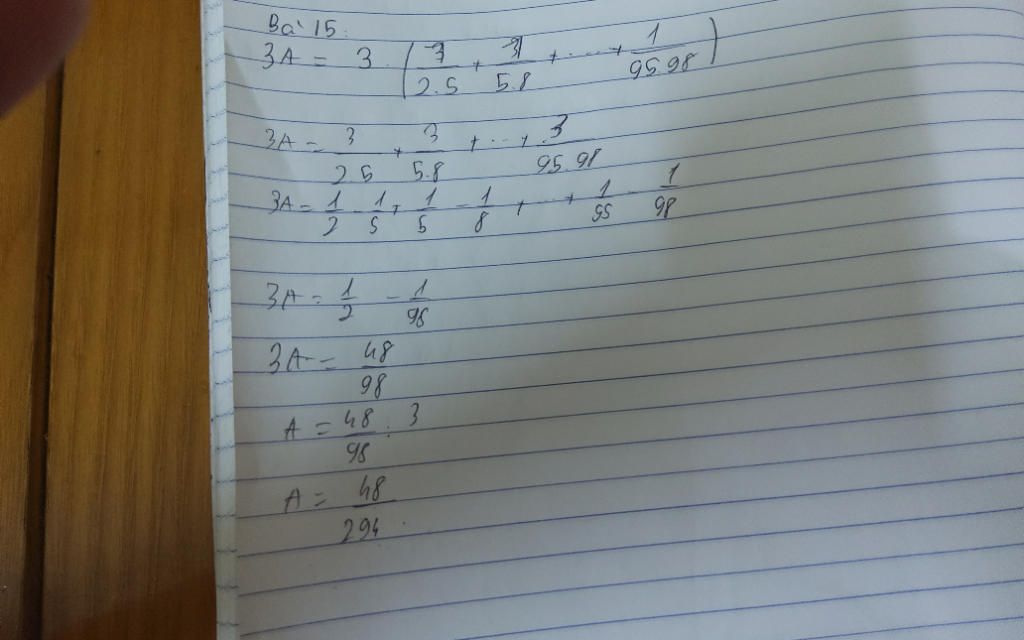 Bài 15.
3A = 3 . (1/2.5 + 1/5.8 + ... + 1/95.98)
3A = 3/2.5 + 3/5.8 + ... + 3/95.98
3A = 1/2 - 1/5 + 1/5 - 1/8 + ... + 1/95 - 1/98
3A = 1/2 - 1/98
3A = 48/98
A = 48/98 : 3
A = 48/294.